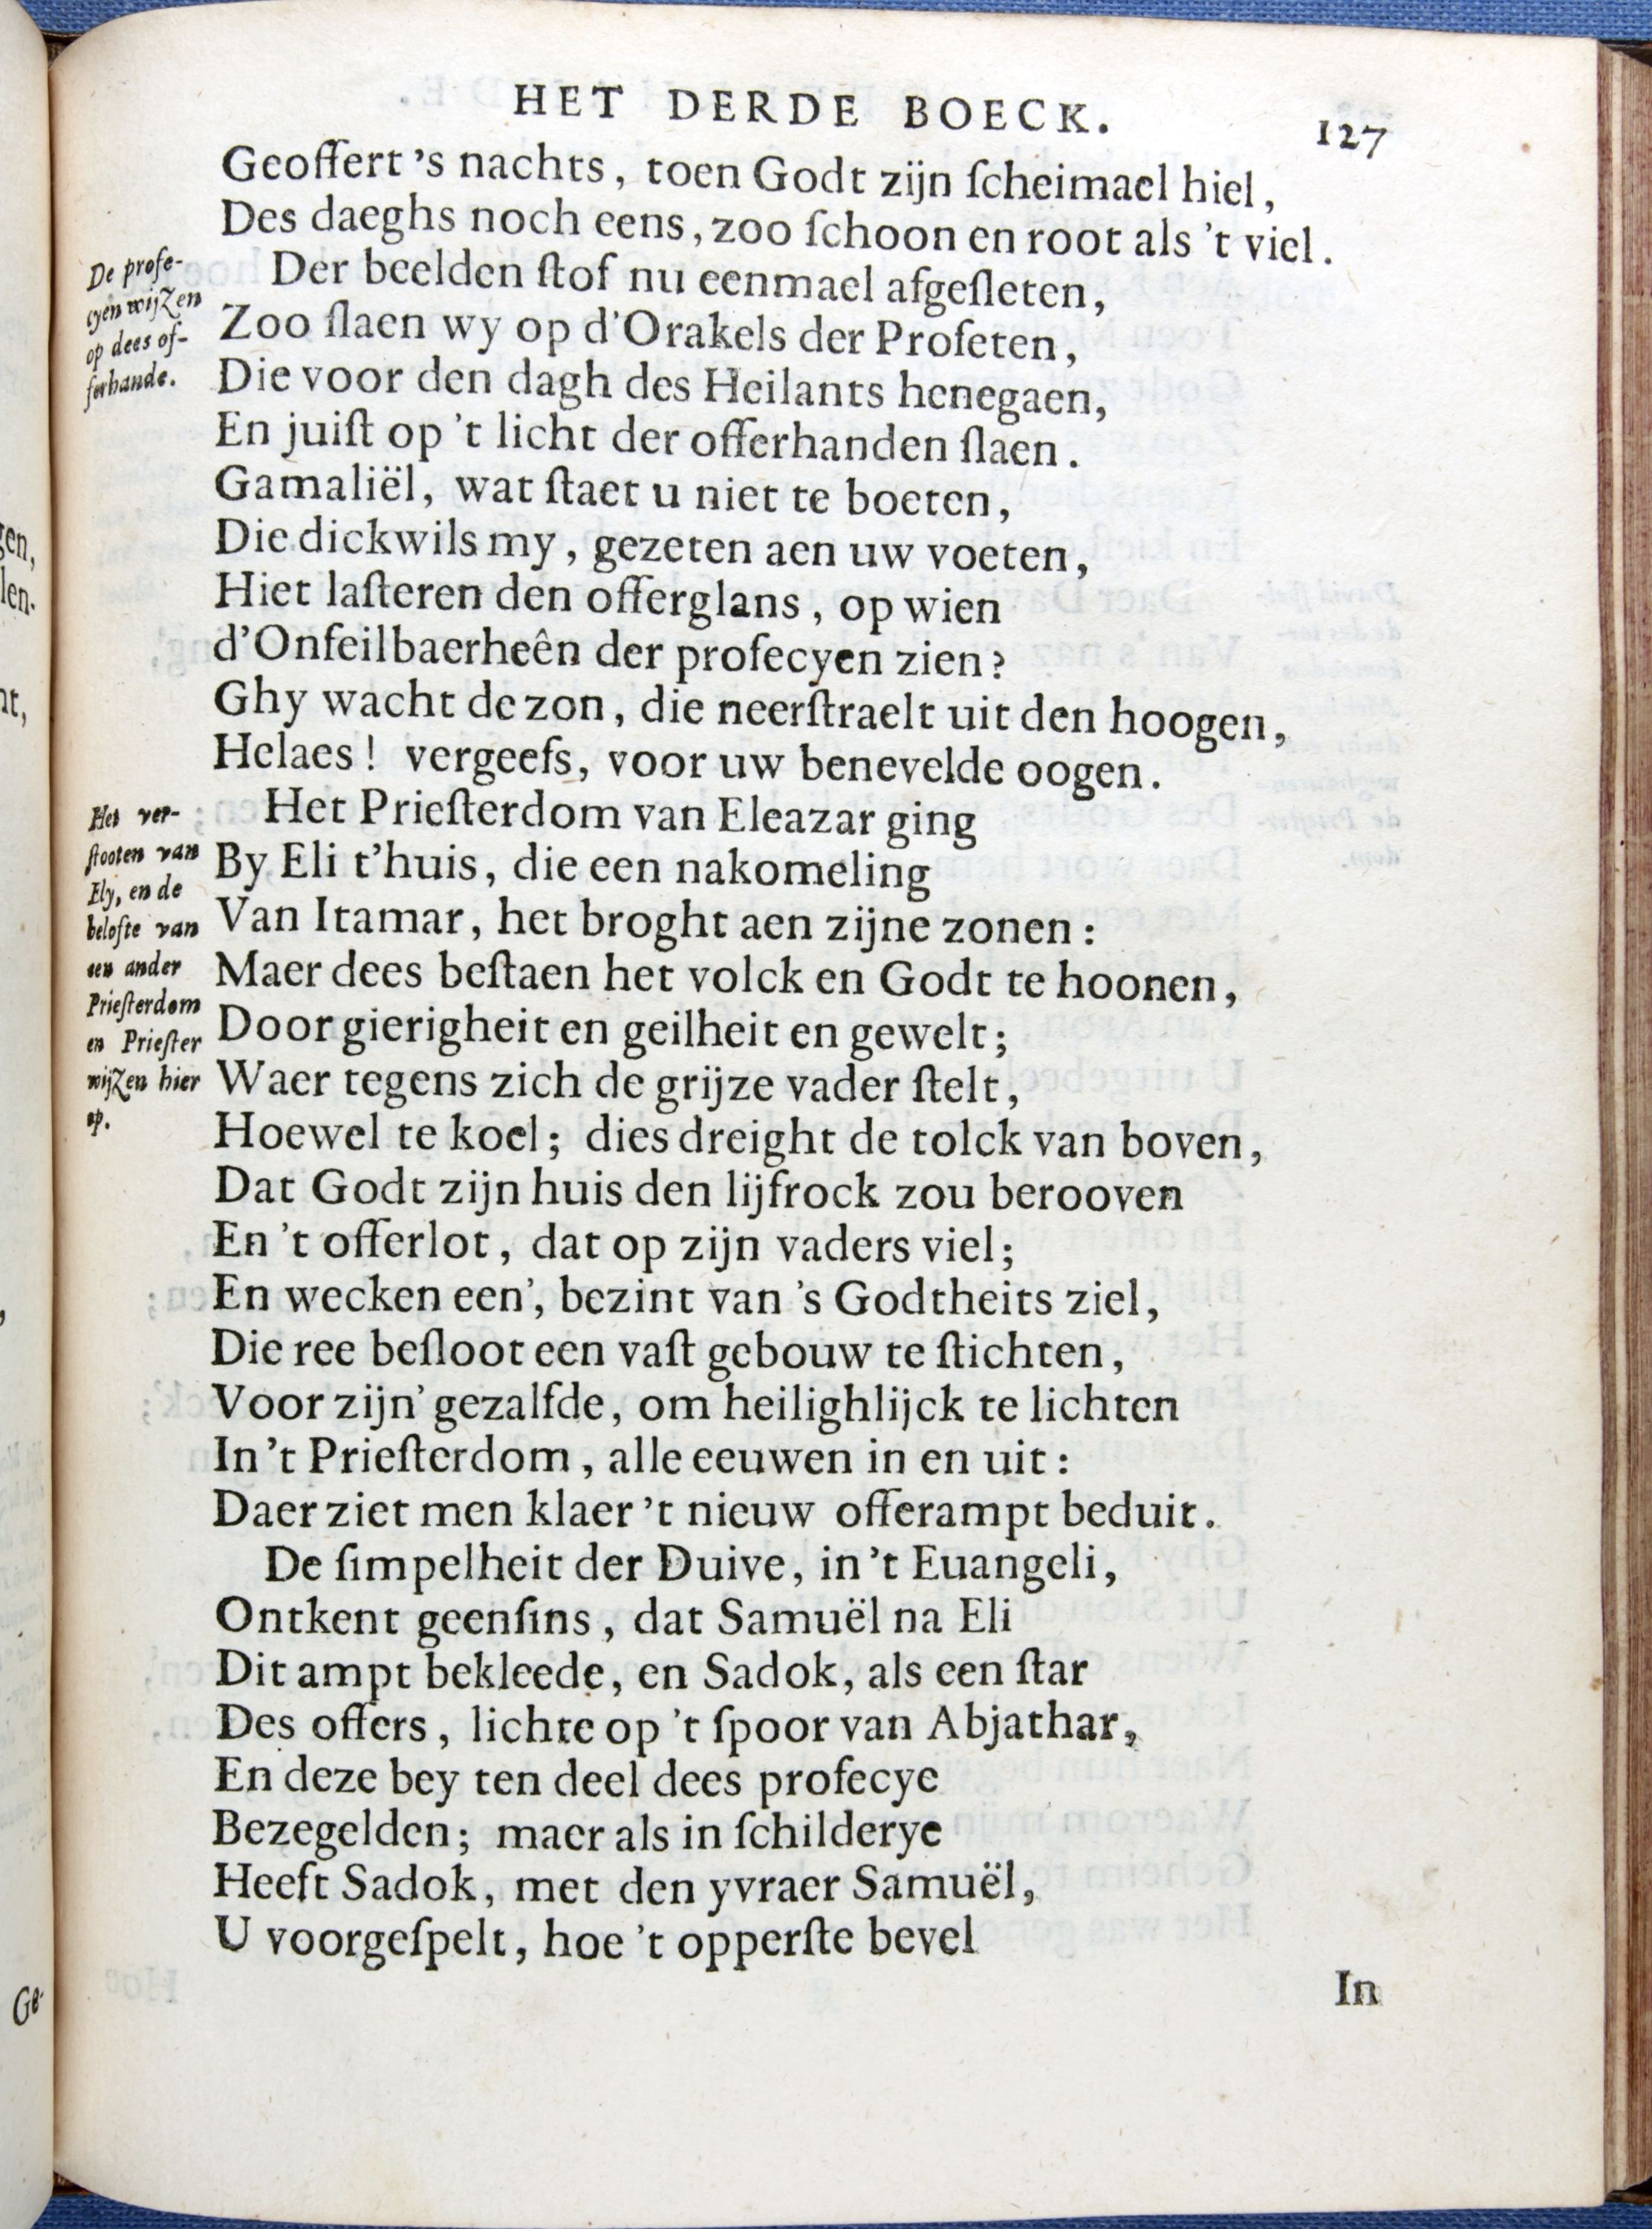 HET DERDE BOECK. 127
Geoffert 's nachts, toen Godt zijn ſcheimael hiel,
Des daeghs noch eens, zoo ſchoon en root als 't viel.
De profe-
cyen wijzen
op dees of-
ferhande.
Der beelden ſtof nu eenmael afgeſleten,
Zoo ſlaen wy op d'Orakels der Profeten,
Die voor den dagh des Heilants henegaen,
En juiſt op 't licht der offerhanden ſlaen.
Gamaliël, wat ſtaet u niet te boeten,
Die dickwils my, gezeten aen uw voeten,
Hiet laſteren den offerglans, op wien
d'Onfeilbaerheên der profecyen zien?
Ghy wacht de zon, die neerſtraelt uit den hoogen,
Helaes! vergeefs, voor uw benevelde oogen.
Het ver-
ſtooten van
Ely, en de
belofte van
een ander
Prieſterdom
en Prieſter
wijzen hier
op.
Het Prieſterdom van Eleazar ging
By Eli t'huis, die een nakomeling
Van Itamar, het broght aen zijne zonen:
Maer dees beſtaen het volck en Godt te hoonen,
Door gierigheit en geilheit en gewelt;
Waer tegens zich de grijze vader ſtelt,
Hoewel te koel; dies dreight de tolck van boven,
Dat Godt zijn huis den lijfrock zou berooven
En 't offerlot, dat op zijn vaders viel;
En wecken een', bezint van 's Godtheits ziel,
Die ree beſloot een vaſt gebouw te ſtichten,
Voor zijn' gezalfde, om heilighlijck te lichten
In 't Prieſterdom, alle eeuwen in en uit:
Daer ziet men klaer 't nieuw offerampt beduit.
De ſimpelheit der Duive, in 't Euangeli,
Ontkent geenſins, dat Samuël na Eli
Dit ampt bekleede, en Sadok, als een ſtar
Des offers, lichte op 't ſpoor van Abjathar,
En deze bey ten deel dees profecye
Bezegelden; maer als in ſchilderye
Heeft Sadok, met den yvraer Samuël,
U voorgeſpelt, hoe 't opperſte bevel
In
gen,
len.
nt,
Ge-